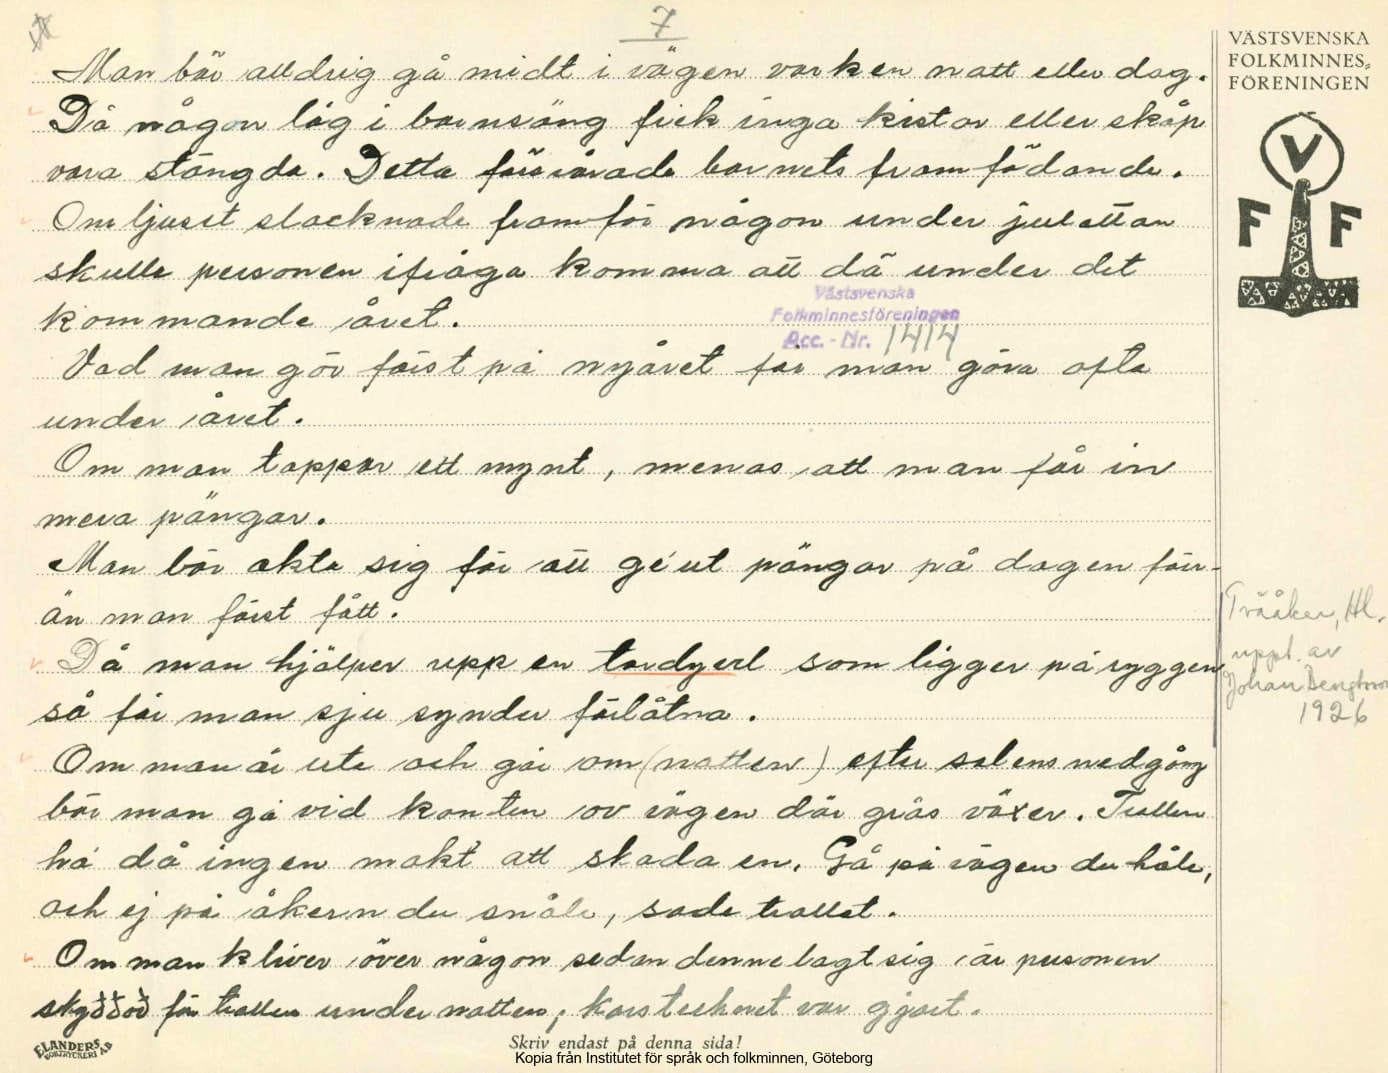 7
Man bör alldrig gå midt i vägen varken natt eller dag.
Då någon låg i barnsäng fick inga kistor eller skåp
vara stängda. Detta försvårade barnets framfödande.
Om ljuset slocknade framför någon under julottan
skulle personen ifråga komma att dö under det
kommande året.
Vad man gör först på nyåret får man göra ofta
under året.
Om man tappar ett mynt, menas att man får in
mera pängar.
Man bör akta sig för att ge ut pängar på dagen förr-
än man först fått.
Då man hjälper upp en tordyvel som ligger på ryggen
så får man sju synder förlåtna.
Om man är ute och går om (natten) efter solens nedgång
bör man gå vid kanten av vägen där gräs växer. Trollen
ha då ingen makt att skada en. Gå på vägen du håle,
och ej på åkern du snåle, sade trollet.
Om man kliver över någon sedan denne lagt sig är personen
skyddad för trollen under natten, korstecknet var gjort.
VÄSTSVENSKA
FOLKMINNES-
FÖRENINGEN
V
F F
Västsvenska
Folkminnesföreningen
Acc. - Nr. 1414
Tvååker, Hl.
uppt. av
Johan Bengtsson
1926
ELANDERS
BOKTRYCKERI A.B
Skriv endast på denna sida!
Kopia från Institutet för språk och folkminnen, Göteborg